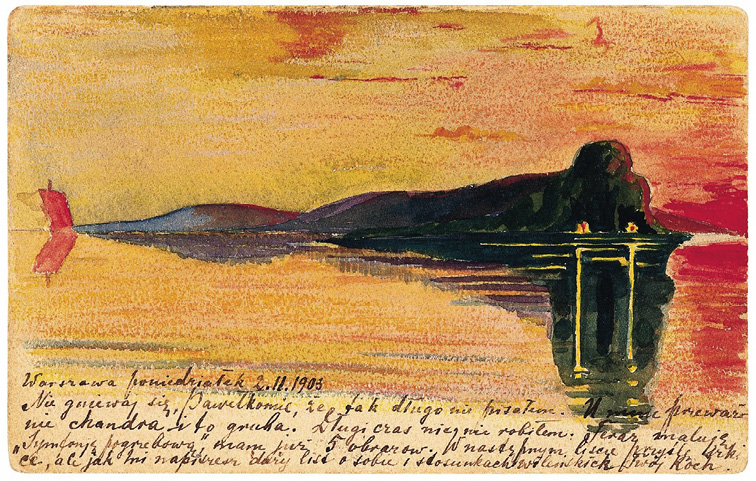 Warszawa poniedziałek 2.II.1903
Nie gniewaj się, Pawełkonić, że tak długo nie pisałem. U mnie przeważ-
nie chandra, i to gruba. Długi czas nic nie robiłem. Teraz maluję
"Symfonję pogrzebową" mam już 5 obrazów. W następnym liście
ce, ale jak mi napiszesz duży list o sobie i stosunkach wileńskich Twój Koch.